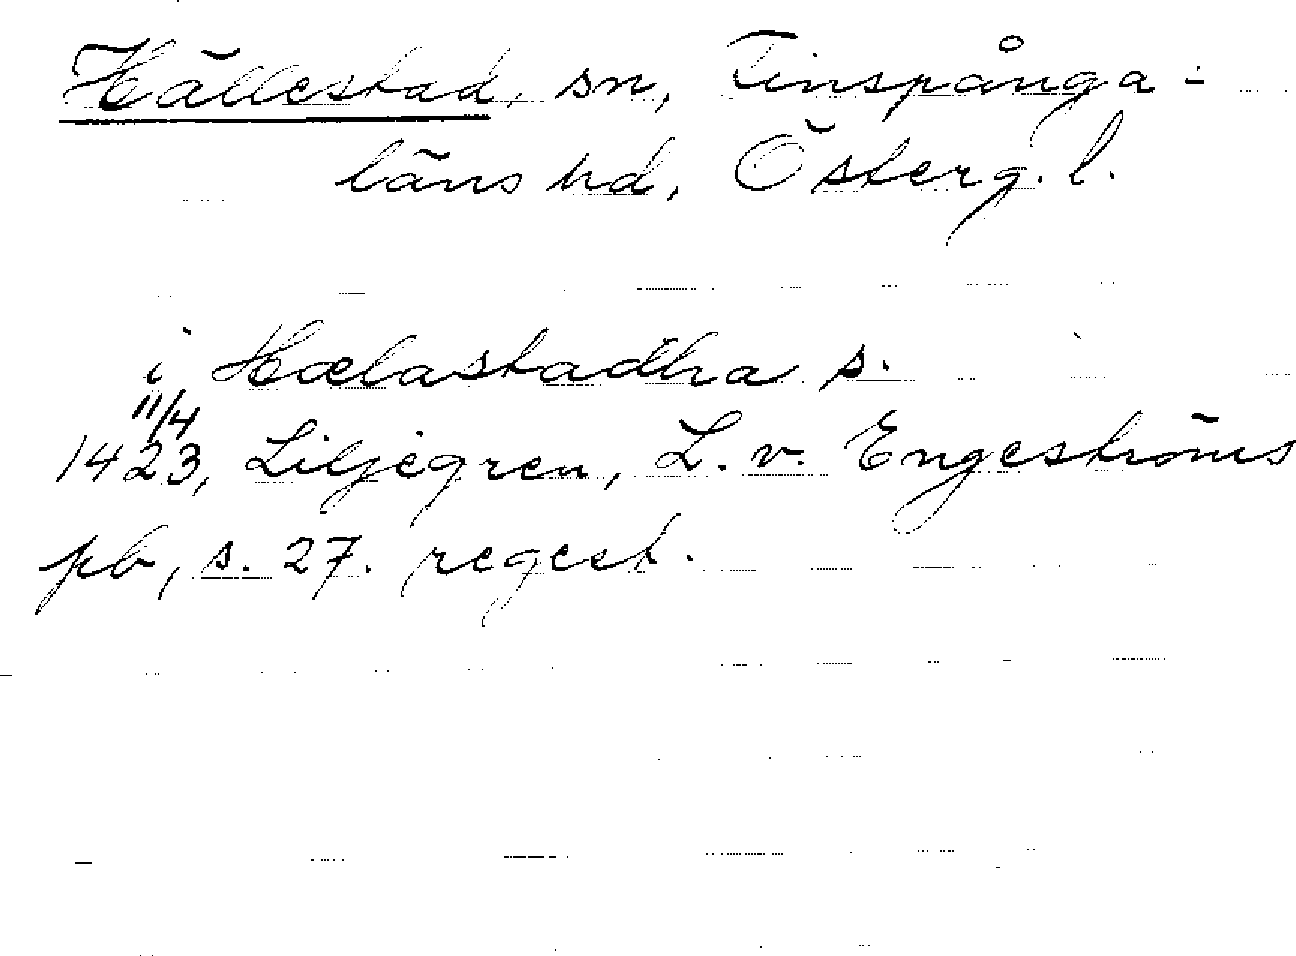 Hällestad, sn, Finspånga-
läns hd, Österg. l.
i Hælastadha s.
11/4
1423, Liljegren, L. v. Engeströms
pb, s. 27. regest.